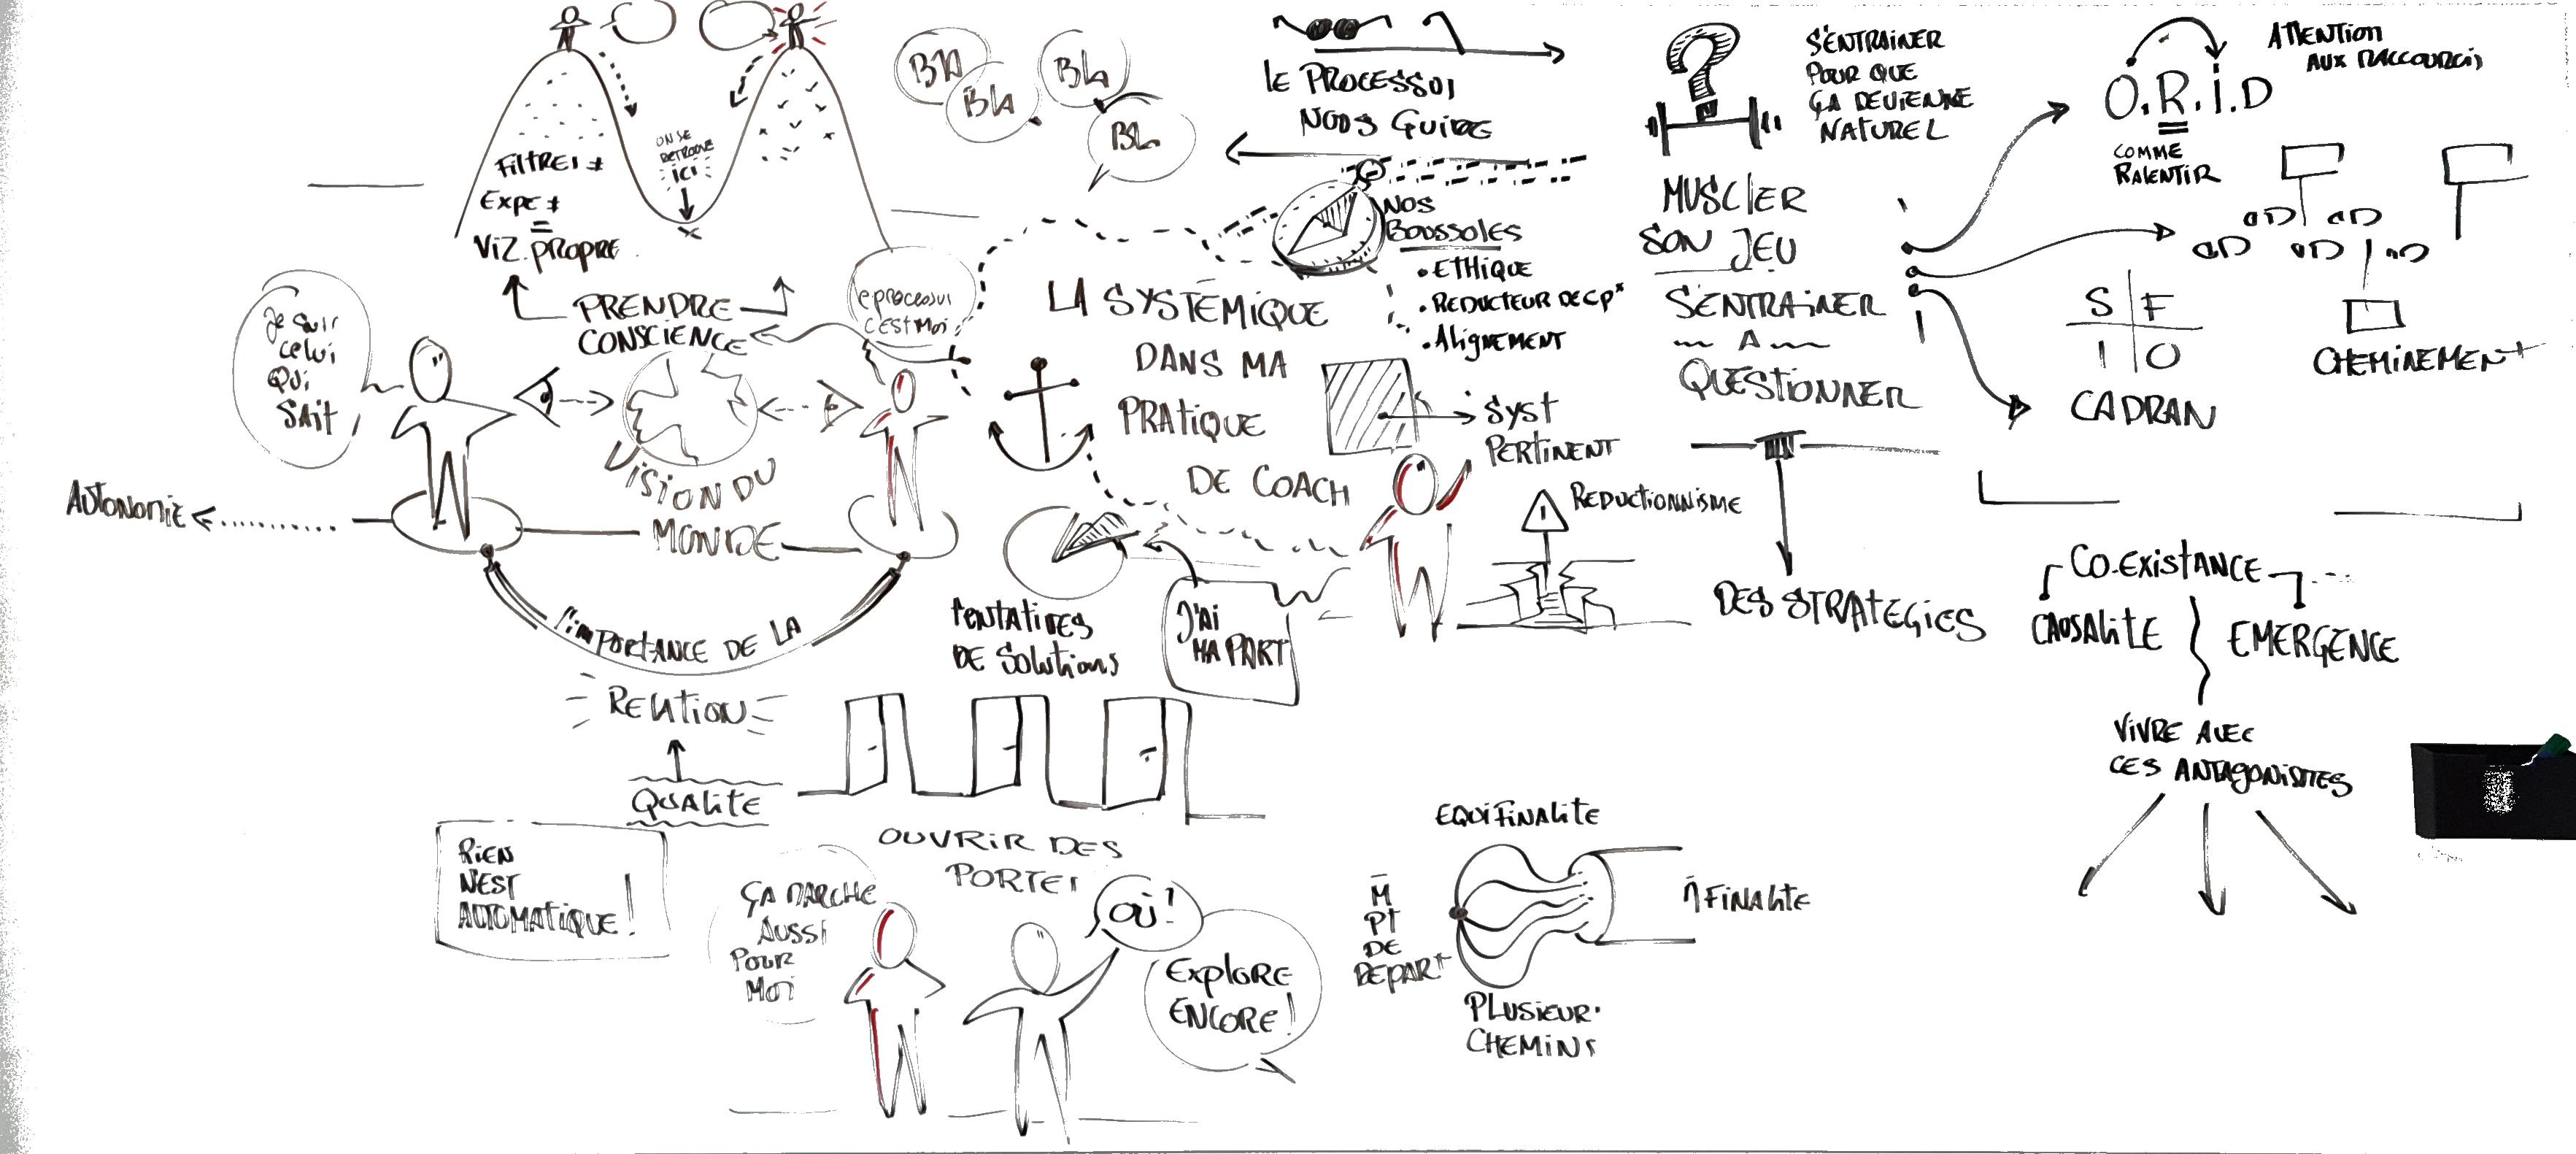 ON SE
RETROUVE
ICI
FiltREs ≠
Expe ≠
=
Viz. propre
PRENDRE
CONSCIENCE
Je suis
celui
Qui
SAit
le processus
c'est Moi
BlA
Bla
Bla
Bla
le PROCESSUS
NOUS GUIDE
S'ENTRAINER
POUR QUE
ÇA DEVIENNE
NATUREL
O.R.I.D
ATTENTION
AUX RACCOURCIS
COMME
RALENTIR
NOS
BOUSSOLES
• ETHIQUE
• REDUCTEUR DE CP*
• Alignement
MUSCLER
SON JEU
S'ENTRAINER
A
QUESTIONNER
S F
I O
CADRAN
CHEMINEMENT
LA SYSTÉMIQUE
DANS MA
PRATIQUE
DE COACH
Syst
PERTINENT
VISION DU
MONDE
AUTONOMIE
l'importance DE LA
RELAtion
QUALITE
TENTATIVES
DE Solutions
J'Ai
MA PART
REDUCTIONNISME
DES STRATEGIES
CO-EXISTANCE
CAUSALITE
EMERGENCE
VIVRE AVEC
CES ANTAGONISTES
RIEN
N'EST
AUTOMATIQUE !
OUVRIR DES
PORTES
ÇA MARCHE
AUSSI
POUR
MOI
OÙ !
Explore
ENCORE !
EQUIFINALITE
M̄
PT
DE
DEPART
FINALITE
PLUSIEURS
CHEMINS